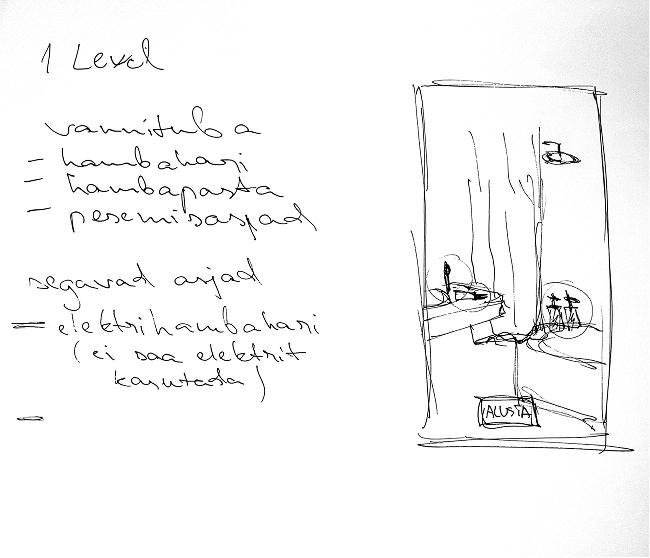 1 Level
vannituba
- hambahari
- hambapasta
- pesemisasjad
segavad asjad
= elektrihambahari
(ei saa elektrit
kasutada)
-
ALUSTA